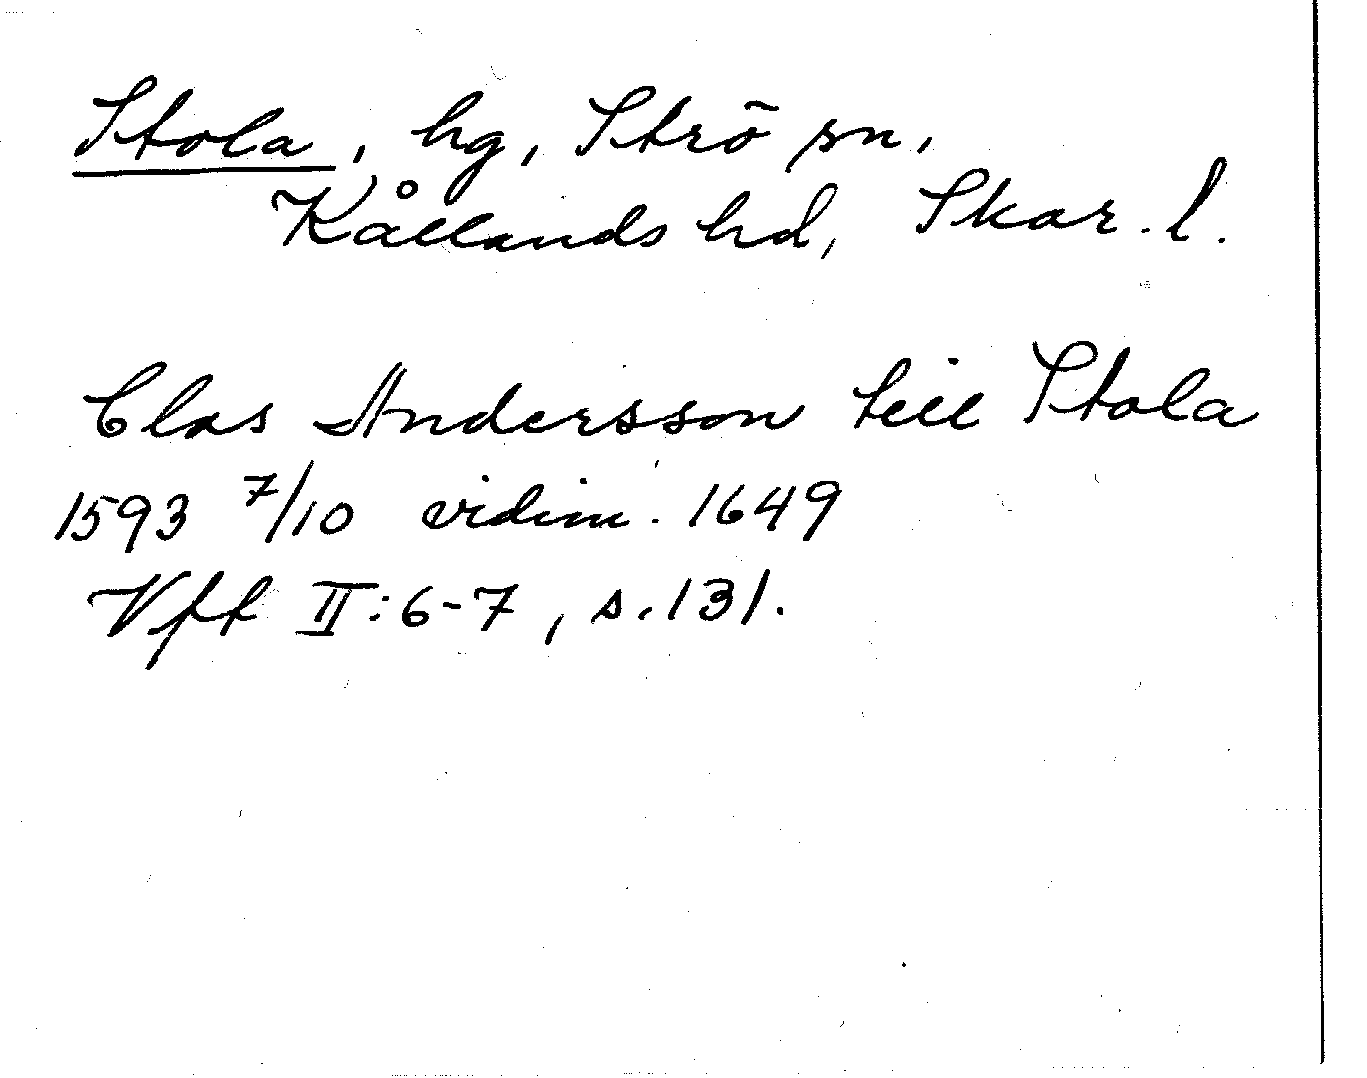 Stola, hg, Strö sn,
Kållands hd, Skar. l.
Clas Andersson till Stola
1593 7/10 vidim. 1649
Vff II:6-7, s. 131.